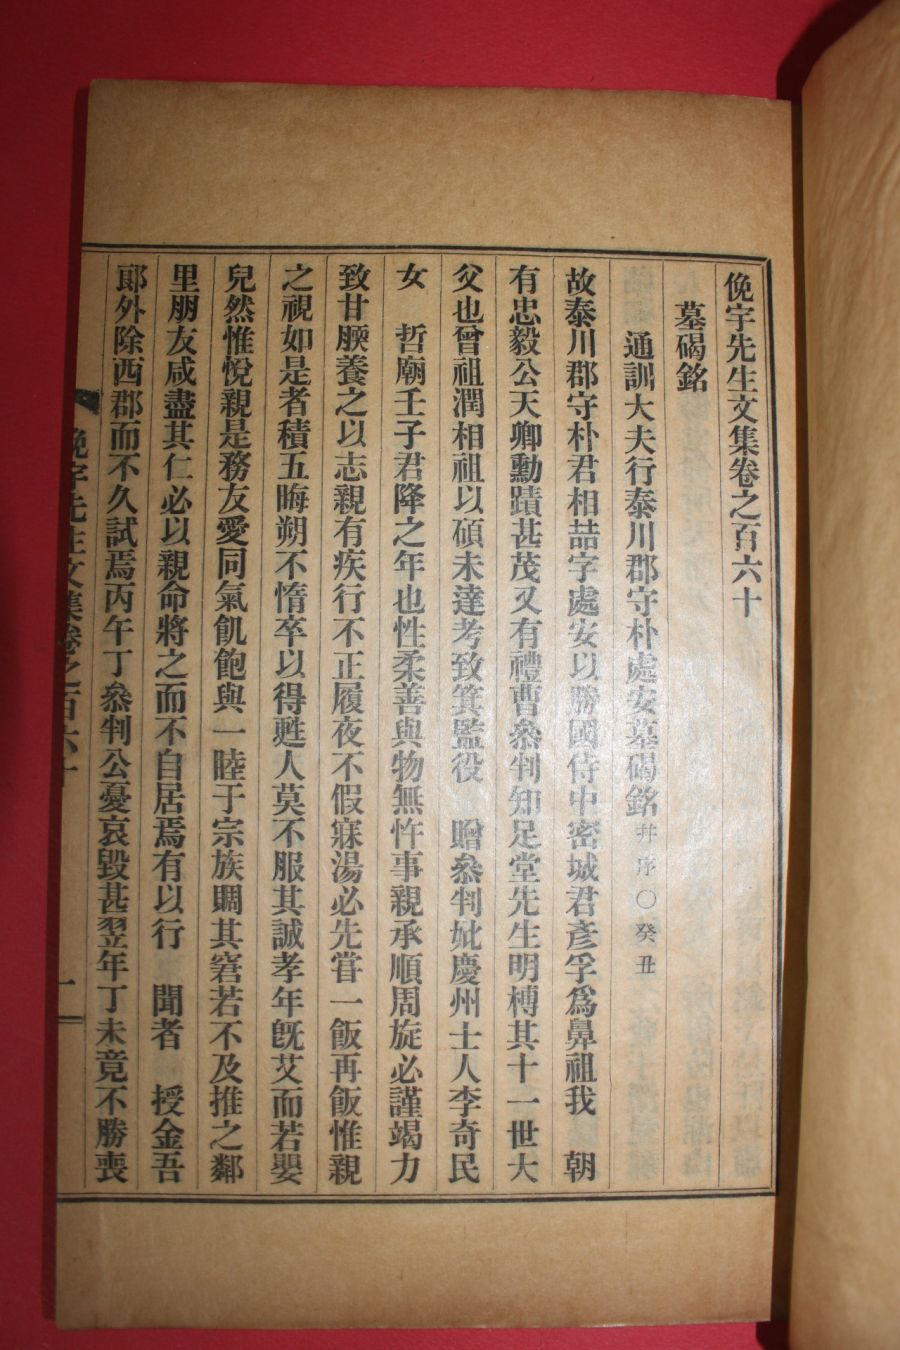 俛宇先生文集卷之百六十
墓碣銘
通訓大夫行泰川郡守朴處安墓碣銘并序○癸丑
故泰川郡守朴君相喆字處安以勝國侍中密城君彥孚爲鼻祖我 朝
有忠毅公天卿勳蹟甚茂又有禮曹叅判知足堂先生明榑其十一世大
父也曾祖潤相祖以碩未達考致箕監役 贈叅判妣慶州士人李奇民
女 哲廟壬子君降之年也性柔善與物無忤事親承順周旋必謹竭力
致甘腴養之以志親有疾行不正履夜不假寐湯必先嘗一飯再飯惟親
之視如是者積五晦朔不惰卒以得甦人莫不服其誠孝年旣艾而若嬰
兒然惟悅親是務友愛同氣飢飽與一睦于宗族賙其窘若不及推之鄰
里朋友咸盡其仁必以親命將之而不自居焉有以行 聞者 授金吾
郞外除西郡而不久試焉丙午丁叅判公憂哀毀甚翌年丁未竟不勝喪
俛宇先生文集卷之百六十
一